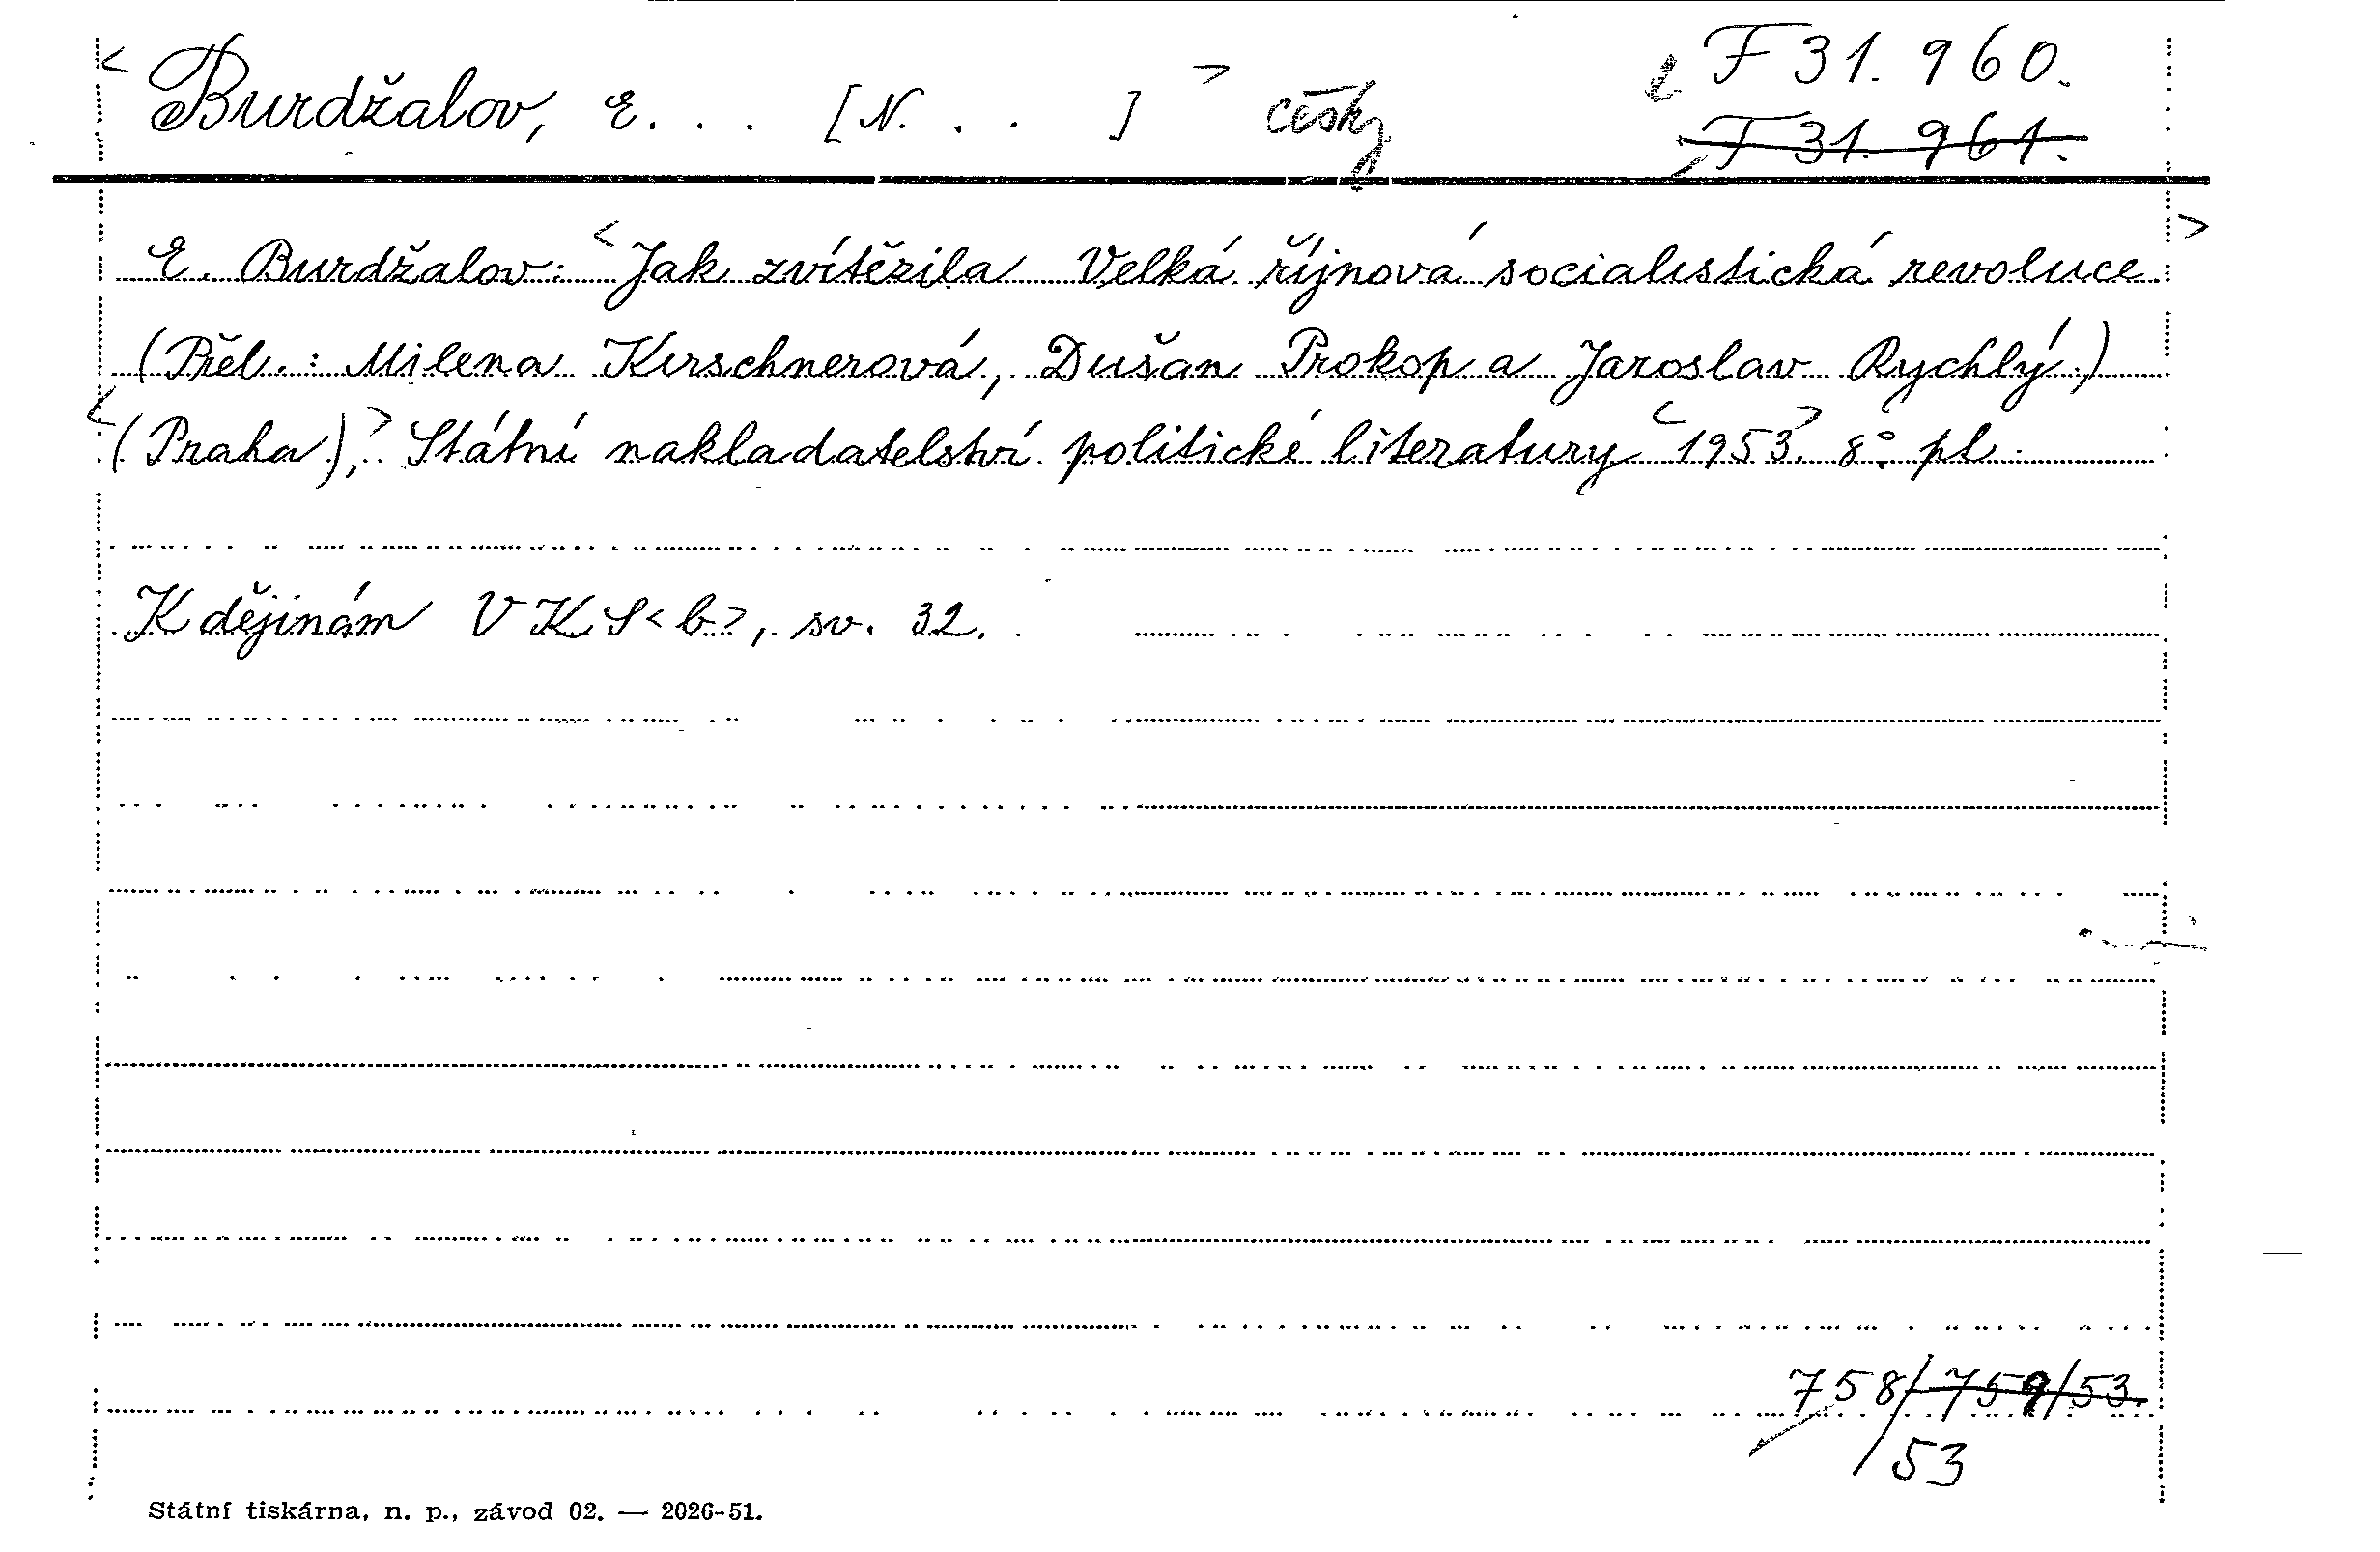 < Burdžalov, E. . . [N. . . ] > česky F 31. 960.
F 31. 961.
E. Burdžalov: < Jak zvítězila Velká říjnová socialistická revoluce. >
(Přel.: Milena Kirschnerová, Dušan Prokop a Jaroslav Rychlý.)
< (Praha), > Státní nakladatelství politické literatury < 1953. > 8°. pl.
K dějinám VKS<b>, sv. 32.
758/759/53.
/53
Státní tiskárna, n. p., závod 02. — 2026-51.